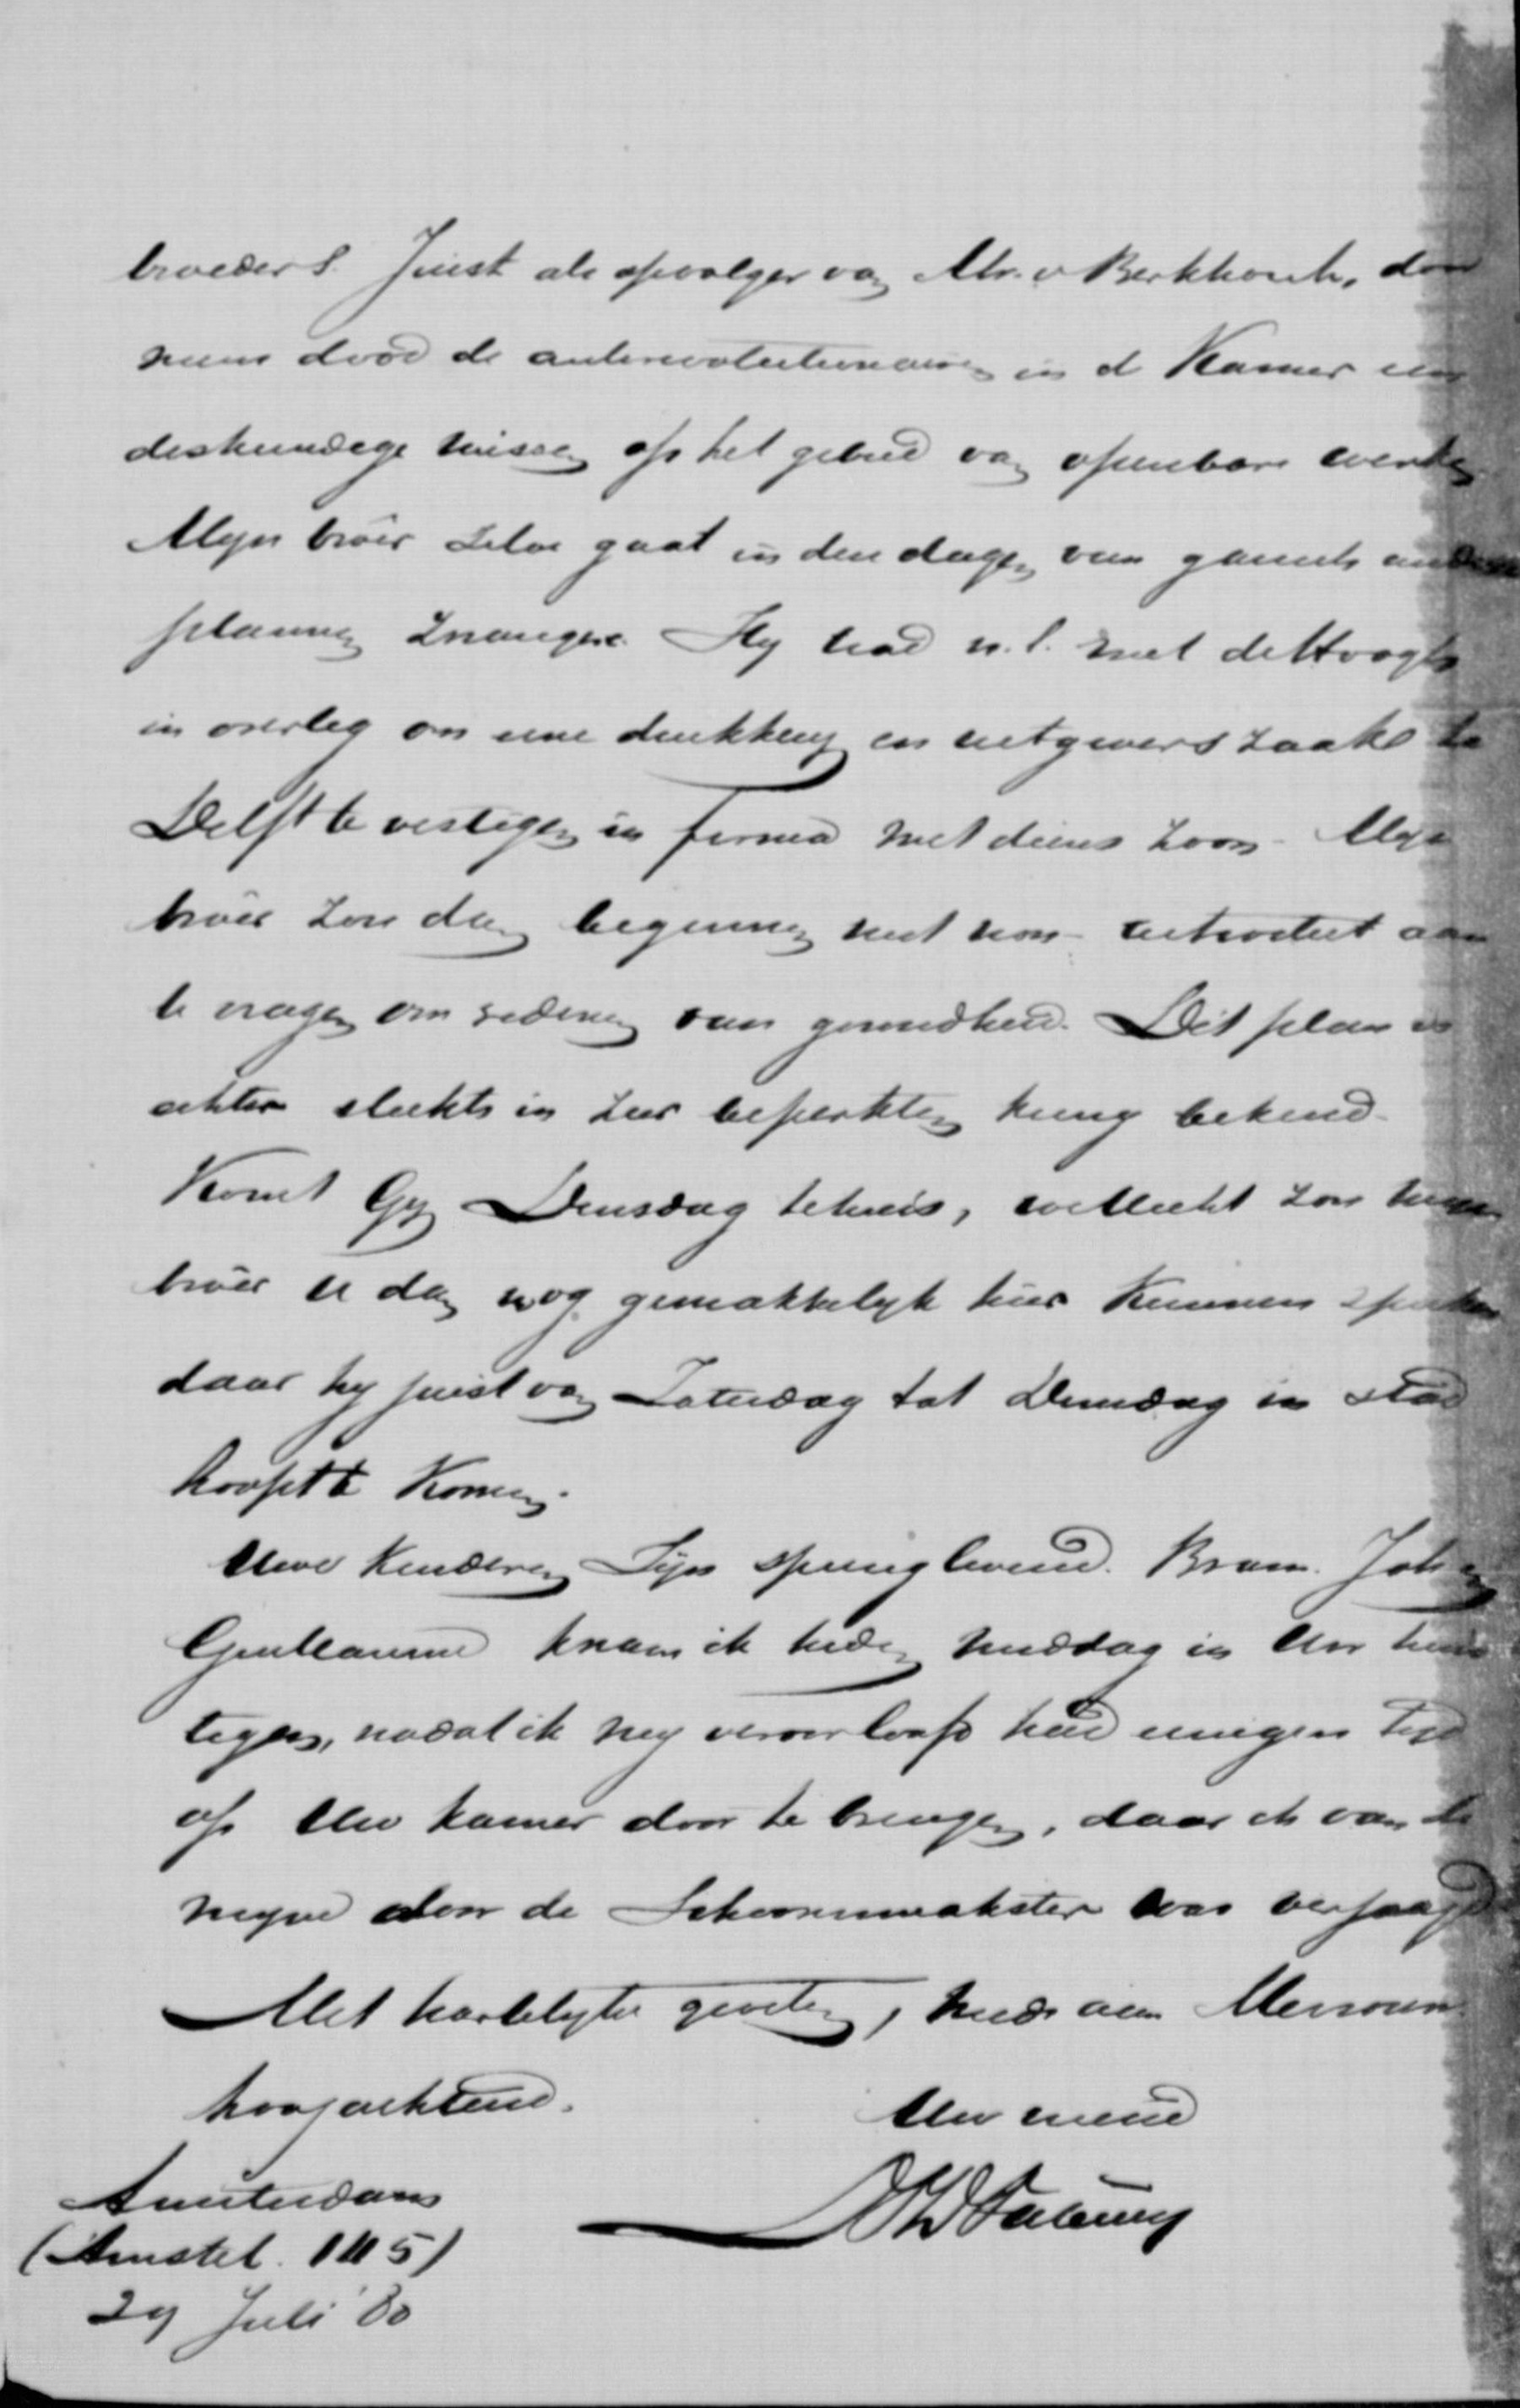 broeders. Juist als opvolger van Mr. v Berkhout, door
wiens dood de antirevolutionairen in de Kamer een
deskundige missen op het gebied van openbare werken
Mijn broêr zelve gaat in den dagen van gansch andere
plannen zwanger. Hij had n.l. met de Hoogh
in overleg om eene drukkerij en uitgevers zaak te
Delft te vestigen in firma met diens zoon. Mijn
broêr zou dan beginnen met non-activiteit aan
te vragen om redenen van gezondheid. Dit plan is
echter slechts in zeer beperkten kring bekend.
Komt Gij Dinsdag tehuis, wellicht zou mijn
broêr U dan nog gemakkelijk hier kunnen spreken
daar hij juist van Zaterdag tot Dinsdag in stad
hoopt te komen.
Uwe kinderen zijn springlevend. Bram. Joh en
Guillaume kwam ik heden middag in Uw huis
tegen, nadat ik mij veroorloofd had eenigen tijd
op Uw kamer door te brengen, daar ik van de
mijne door de Schoonmaakster was verjaagd
Met hartelijke groeten, mede aan Mevrouw
hoogachtend.
Uw vriend
Amsterdam
(Amstel. 115)
29 Juli '80